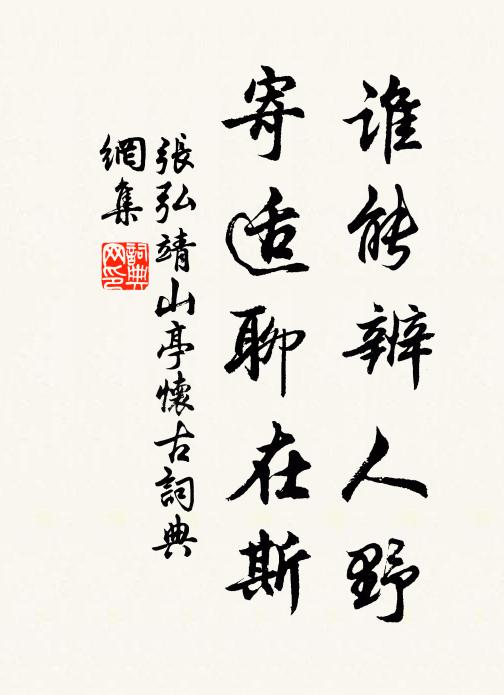 谁能辨人野
寄适聊在斯
張弘靖山亭懷古詞典
網集
詞典
网印